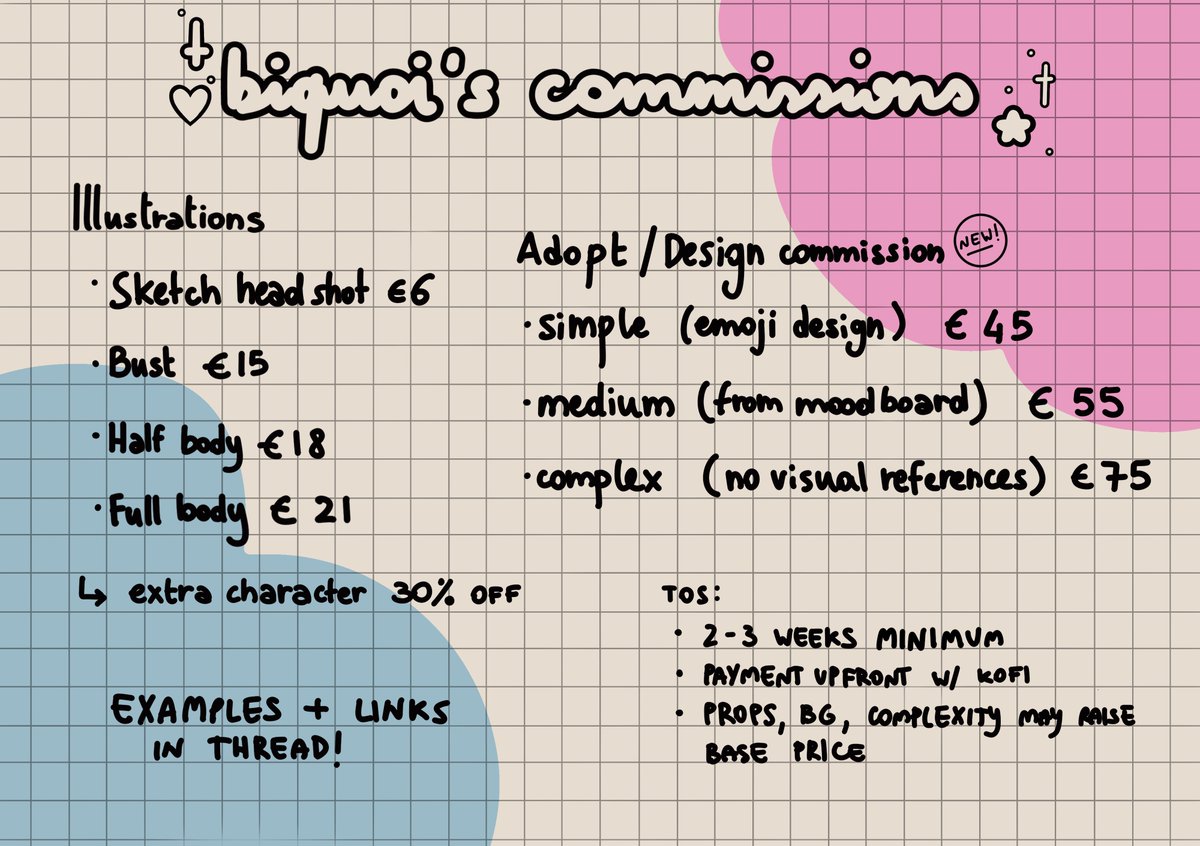 biquoi's commissions
Illustrations
· Sketch headshot €6
· Bust €15
· Half body €18
· Full body €21
↳ extra character 30% OFF
EXAMPLES + LINKS
IN THREAD!
Adopt/Design commission NEW!
· simple (emoji design) €45
· medium (from moodboard) €55
· complex (no visual references) €75
TOS:
· 2-3 WEEKS MINIMUM
· PAYMENT UPFRONT W/ KOFI
· PROPS, BG, COMPLEXITY MAY RAISE
BASE PRICE